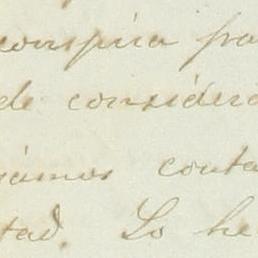 conspira pa
de consider
iamos conta
tad. Lo he